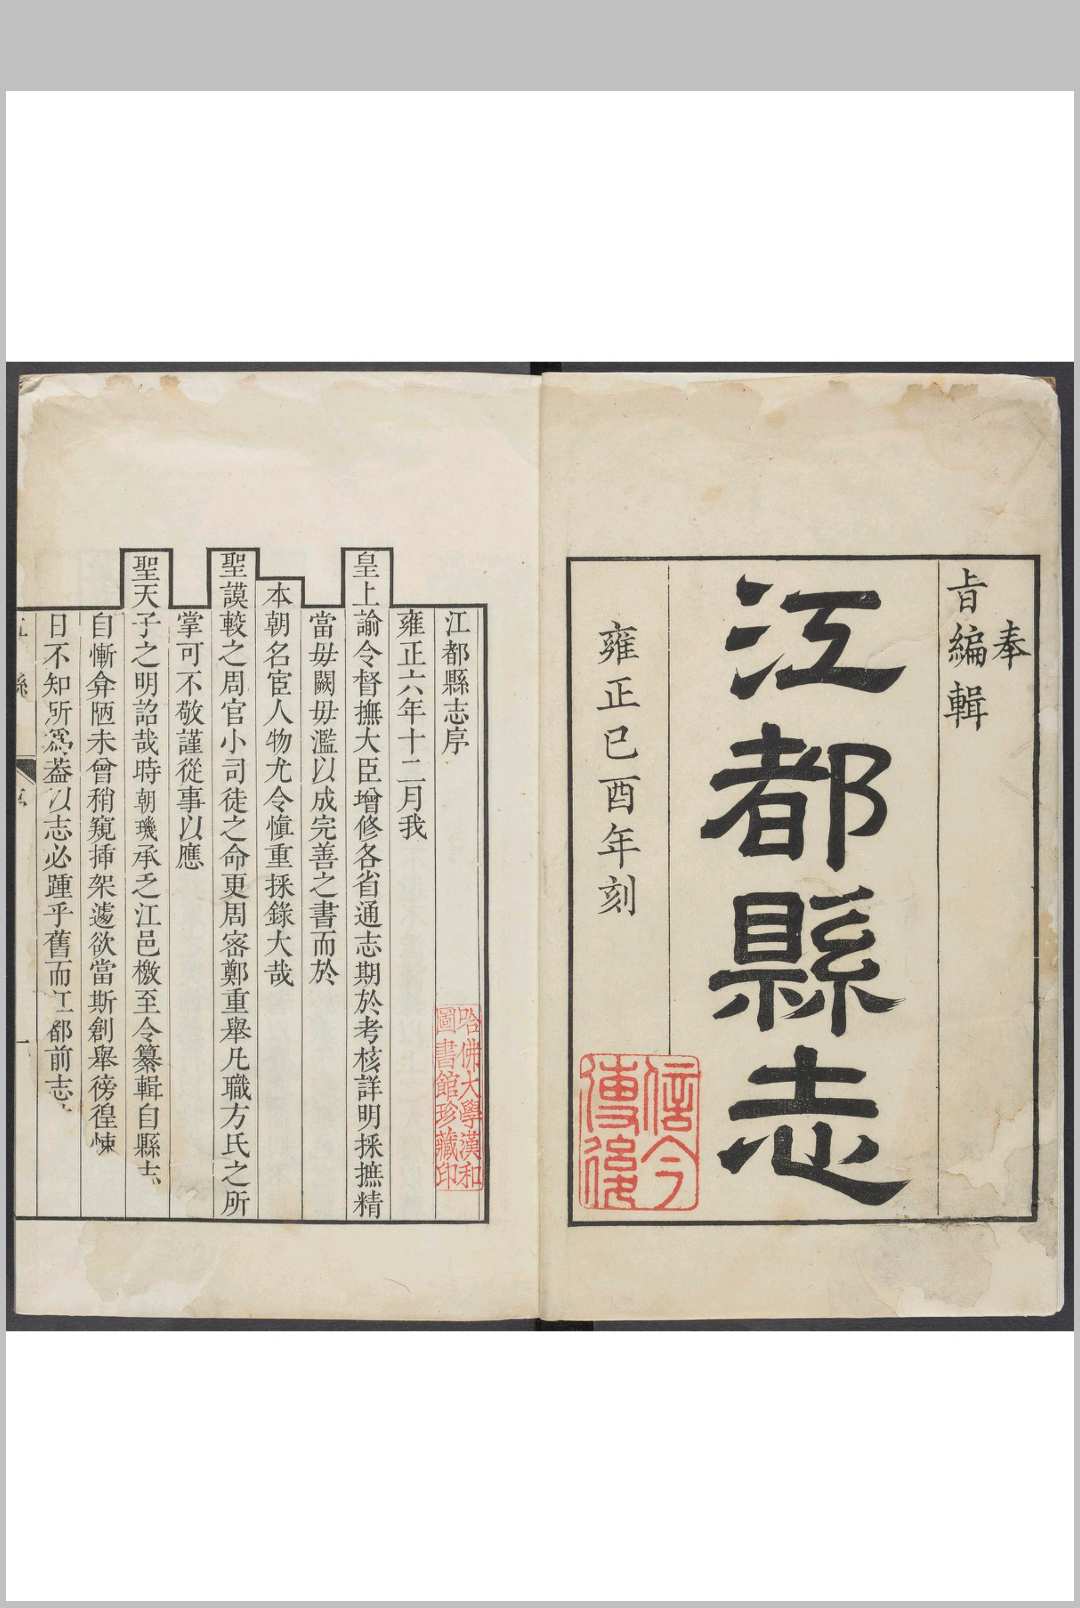 奉
旨編輯
江都縣志
雍正己酉年刻
信今
傳後
江都縣志序
哈佛大學漢和
圖書館珍藏印
雍正六年十二月我
皇上諭令督撫大臣增修各省通志期於考核詳明採摭精
當毋闕毋濫以成完善之書而於
本朝名宦人物尤令慎重採錄大哉
聖謨較之周官小司徒之命更周密鄭重舉凡職方氏之所
掌可不敬謹從事以應
聖天子之明詔哉時朝璣承乏江邑檄至令纂輯自縣志
自慚弇陋未曾稍窺揷架遽欲當斯創舉徬徨悚
日不知所爲葢以志必踵乎舊而江都前志